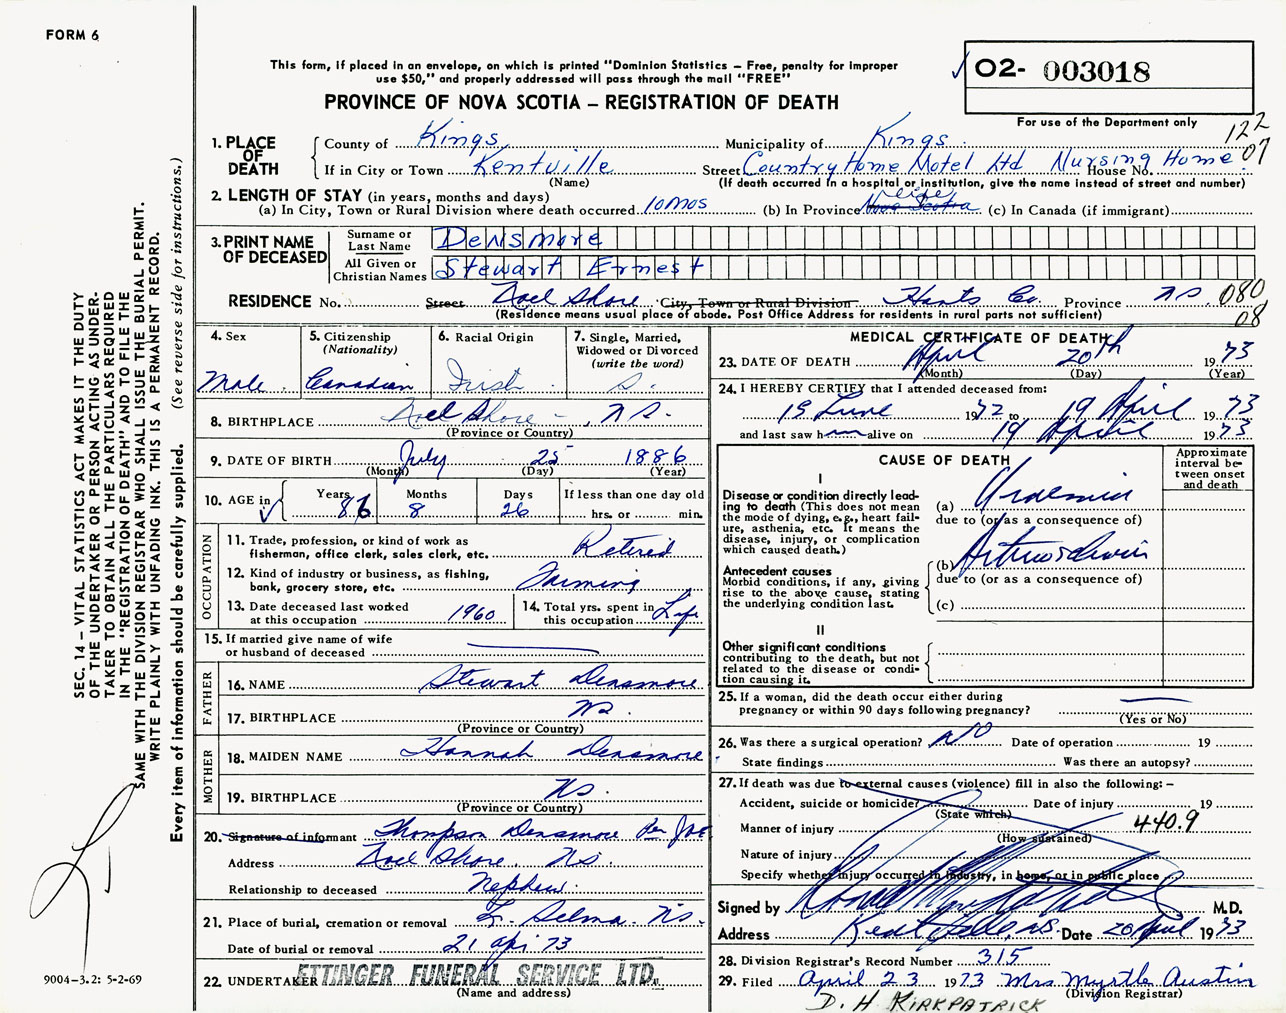 FORM 6
This form, if placed in an envelope, on which is printed "Dominion Statistics – Free, penalty for improper
use $50," and properly addressed will pass through the mail "FREE"
PROVINCE OF NOVA SCOTIA – REGISTRATION OF DEATH
02- 003018
For use of the Department only
122
07
1. PLACE OF DEATH
County of Kings Municipality of Kings
If in City or Town Kentville Street Country Home Motel Ltd Nursing Home House No.
(Name) (If death occurred in a hospital or institution, give the name instead of street and number)
2. LENGTH OF STAY (in years, months and days)
(a) In City, Town or Rural Division where death occurred 10 mos (b) In Province Nova Scotia life (c) In Canada (if immigrant)
3. PRINT NAME OF DECEASED
Surname or Last Name Densmore
All Given or Christian Names Stewart Ernest
RESIDENCE No. Street Noel Shore City, Town or Rural Division Hants Co. Province N.S. 080
(Residence means usual place of abode. Post Office Address for residents in rural parts not sufficient) 08
4. Sex Male
5. Citizenship (Nationality) Canadian
6. Racial Origin Irish
7. Single, Married, Widowed or Divorced (write the word) S.
8. BIRTHPLACE Noel Shore, N.S.
(Province or Country)
9. DATE OF BIRTH July 25 1886
(Month) (Day) (Year)
10. AGE in Years 86 Months 8 Days 26 If less than one day old
hrs. or min.
OCCUPATION
11. Trade, profession, or kind of work as
fisherman, office clerk, sales clerk, etc. Retired
12. Kind of industry or business, as fishing,
bank, grocery store, etc. Farming
13. Date deceased last worked
at this occupation 1960
14. Total yrs. spent in
this occupation Life
15. If married give name of wife
or husband of deceased
FATHER
16. NAME Stewart Densmore
17. BIRTHPLACE NS.
(Province or Country)
MOTHER
18. MAIDEN NAME Hannah Densmore
19. BIRTHPLACE NS.
(Province or Country)
20. Signature of informant Thompson Densmore Per
Address Noel Shore, NS
Relationship to deceased Nephew
21. Place of burial, cremation or removal Selma NS.
Date of burial or removal 21 apr 73
22. UNDERTAKER ETTINGER FUNERAL SERVICE LTD.
(Name and address)
MEDICAL CERTIFICATE OF DEATH
23. DATE OF DEATH April 20th 1973
(Month) (Day) (Year)
24. I HEREBY CERTIFY that I attended deceased from:
15 June 1972 to 19 April 1973
and last saw h alive on 19 April 1973
CAUSE OF DEATH
Approximate interval between onset and death
I
Disease or condition directly lead-
ing to death (This does not mean
the mode of dying, e.g., heart fail-
ure, asthenia, etc. It means the
disease, injury, or complication
which caused death.)
(a) Uraemia
due to (or as a consequence of)
Antecedent causes
Morbid conditions, if any, giving
rise to the above cause, stating
the underlying condition last.
(b)
due to (or as a consequence of)
(c)
II
Other significant conditions
contributing to the death, but not
related to the disease or condi-
tion causing it.
25. If a woman, did the death occur either during
pregnancy or within 90 days following pregnancy?
(Yes or No)
26. Was there a surgical operation? NO Date of operation 19
State findings Was there an autopsy?
27. If death was due to external causes (violence) fill in also the following:–
Accident, suicide or homicide? Date of injury 19
(State which)
Manner of injury 440.9
(How sustained)
Nature of injury
Specify whether injury occurred in industry, in home, or in public place
Signed by M.D.
Address Kentville, N.S. Date 20 April 1973
28. Division Registrar's Record Number 315
29. Filed April 23 1973 Mrs Myrtle Austin
(Division Registrar)
D. H KIRKPATRICK
SEC. 14 – VITAL STATISTICS ACT MAKES IT THE DUTY
OF THE UNDERTAKER OR PERSON ACTING AS UNDER-
TAKER TO OBTAIN ALL THE PARTICULARS REQUIRED
IN THE "REGISTRATION OF DEATH" AND TO FILE THE
SAME WITH THE DIVISION REGISTRAR WHO SHALL ISSUE THE BURIAL PERMIT.
WRITE PLAINLY WITH UNFADING INK. THIS IS A PERMANENT RECORD.
Every item of information should be carefully supplied. (See reverse side for instructions.)
9004–3.2: 5-2-69